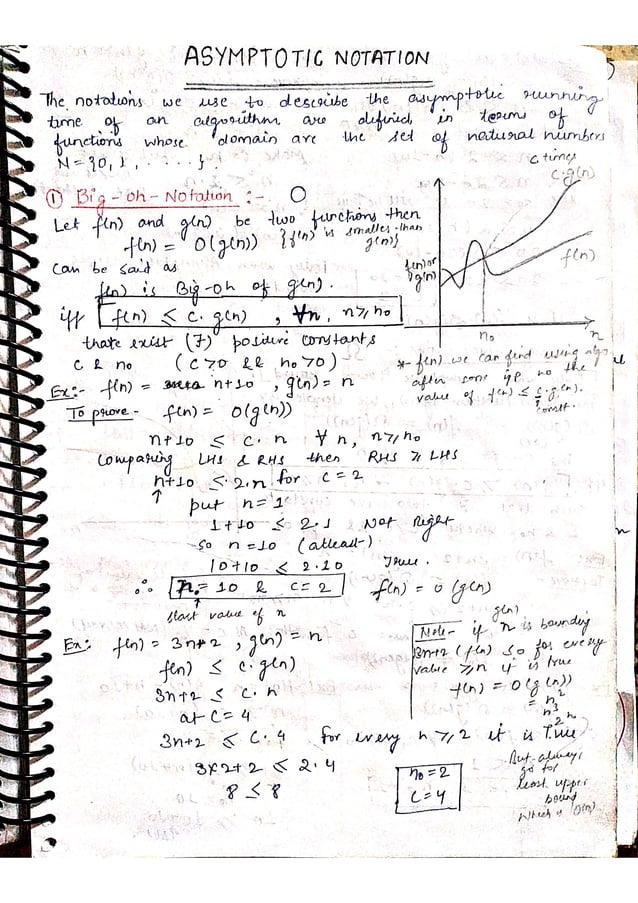 ASYMPTOTIC NOTATION
The notations we use to describe the asymptotic running
time of an algorithm are defined in terms of
functions whose domain are the set of natural numbers
N = {0, 1, .....}
① Big-oh-Notation :- O
Let f(n) and g(n) be two functions then
f(n) = O(g(n)) {f(n) is smaller than
g(n)}
Can be said as
f(n) is Big-oh of g(n).
iff f(n) ≤ c. g(n) , ∀n, n ≥ n₀
thate exist (7) positive constants
c & n₀ (c>0 && n₀>0)
c times
c.g(n)
f(n) or
g(n)
f(n)
n₀
n
*- f(n) we can find using algo
after some i/p n₀ the
value of f(n) ≤ c.g(n).
const.
Ex:- f(n) = n+10 , g(n) = n
To prove - f(n) = O(g(n))
n+10 ≤ c. n ∀ n, n ≥ n₀
Comparing LHS & RHS then RHS ≥ LHS
n+10 ≤ 2.n for c = 2
↑ put n = 1
1+10 ≤ 2.1 Not Right
so n = 10 (atleast)
10+10 ≤ 2.10 True.
∴ n₀ = 10 & c = 2 f(n) = O(g(n))
↑
start value of n
Ex: f(n) = 3n+2 , g(n) = n
f(n) ≤ c.g(n)
3n+2 ≤ c. n
at c = 4
3n+2 ≤ c.4 for every n ≥ 2 it is True
3×2+2 ≤ 2.4
8 ≤ 8
n₀ = 2
c = 4
g(n)
Note- if n is bounding
3n+2 (f(n)) so for every
value ≥ n it is true
f(n) = O(g(n))
= n²
n³
2ⁿ
But always
go for
least upper
bound
which is O(n)